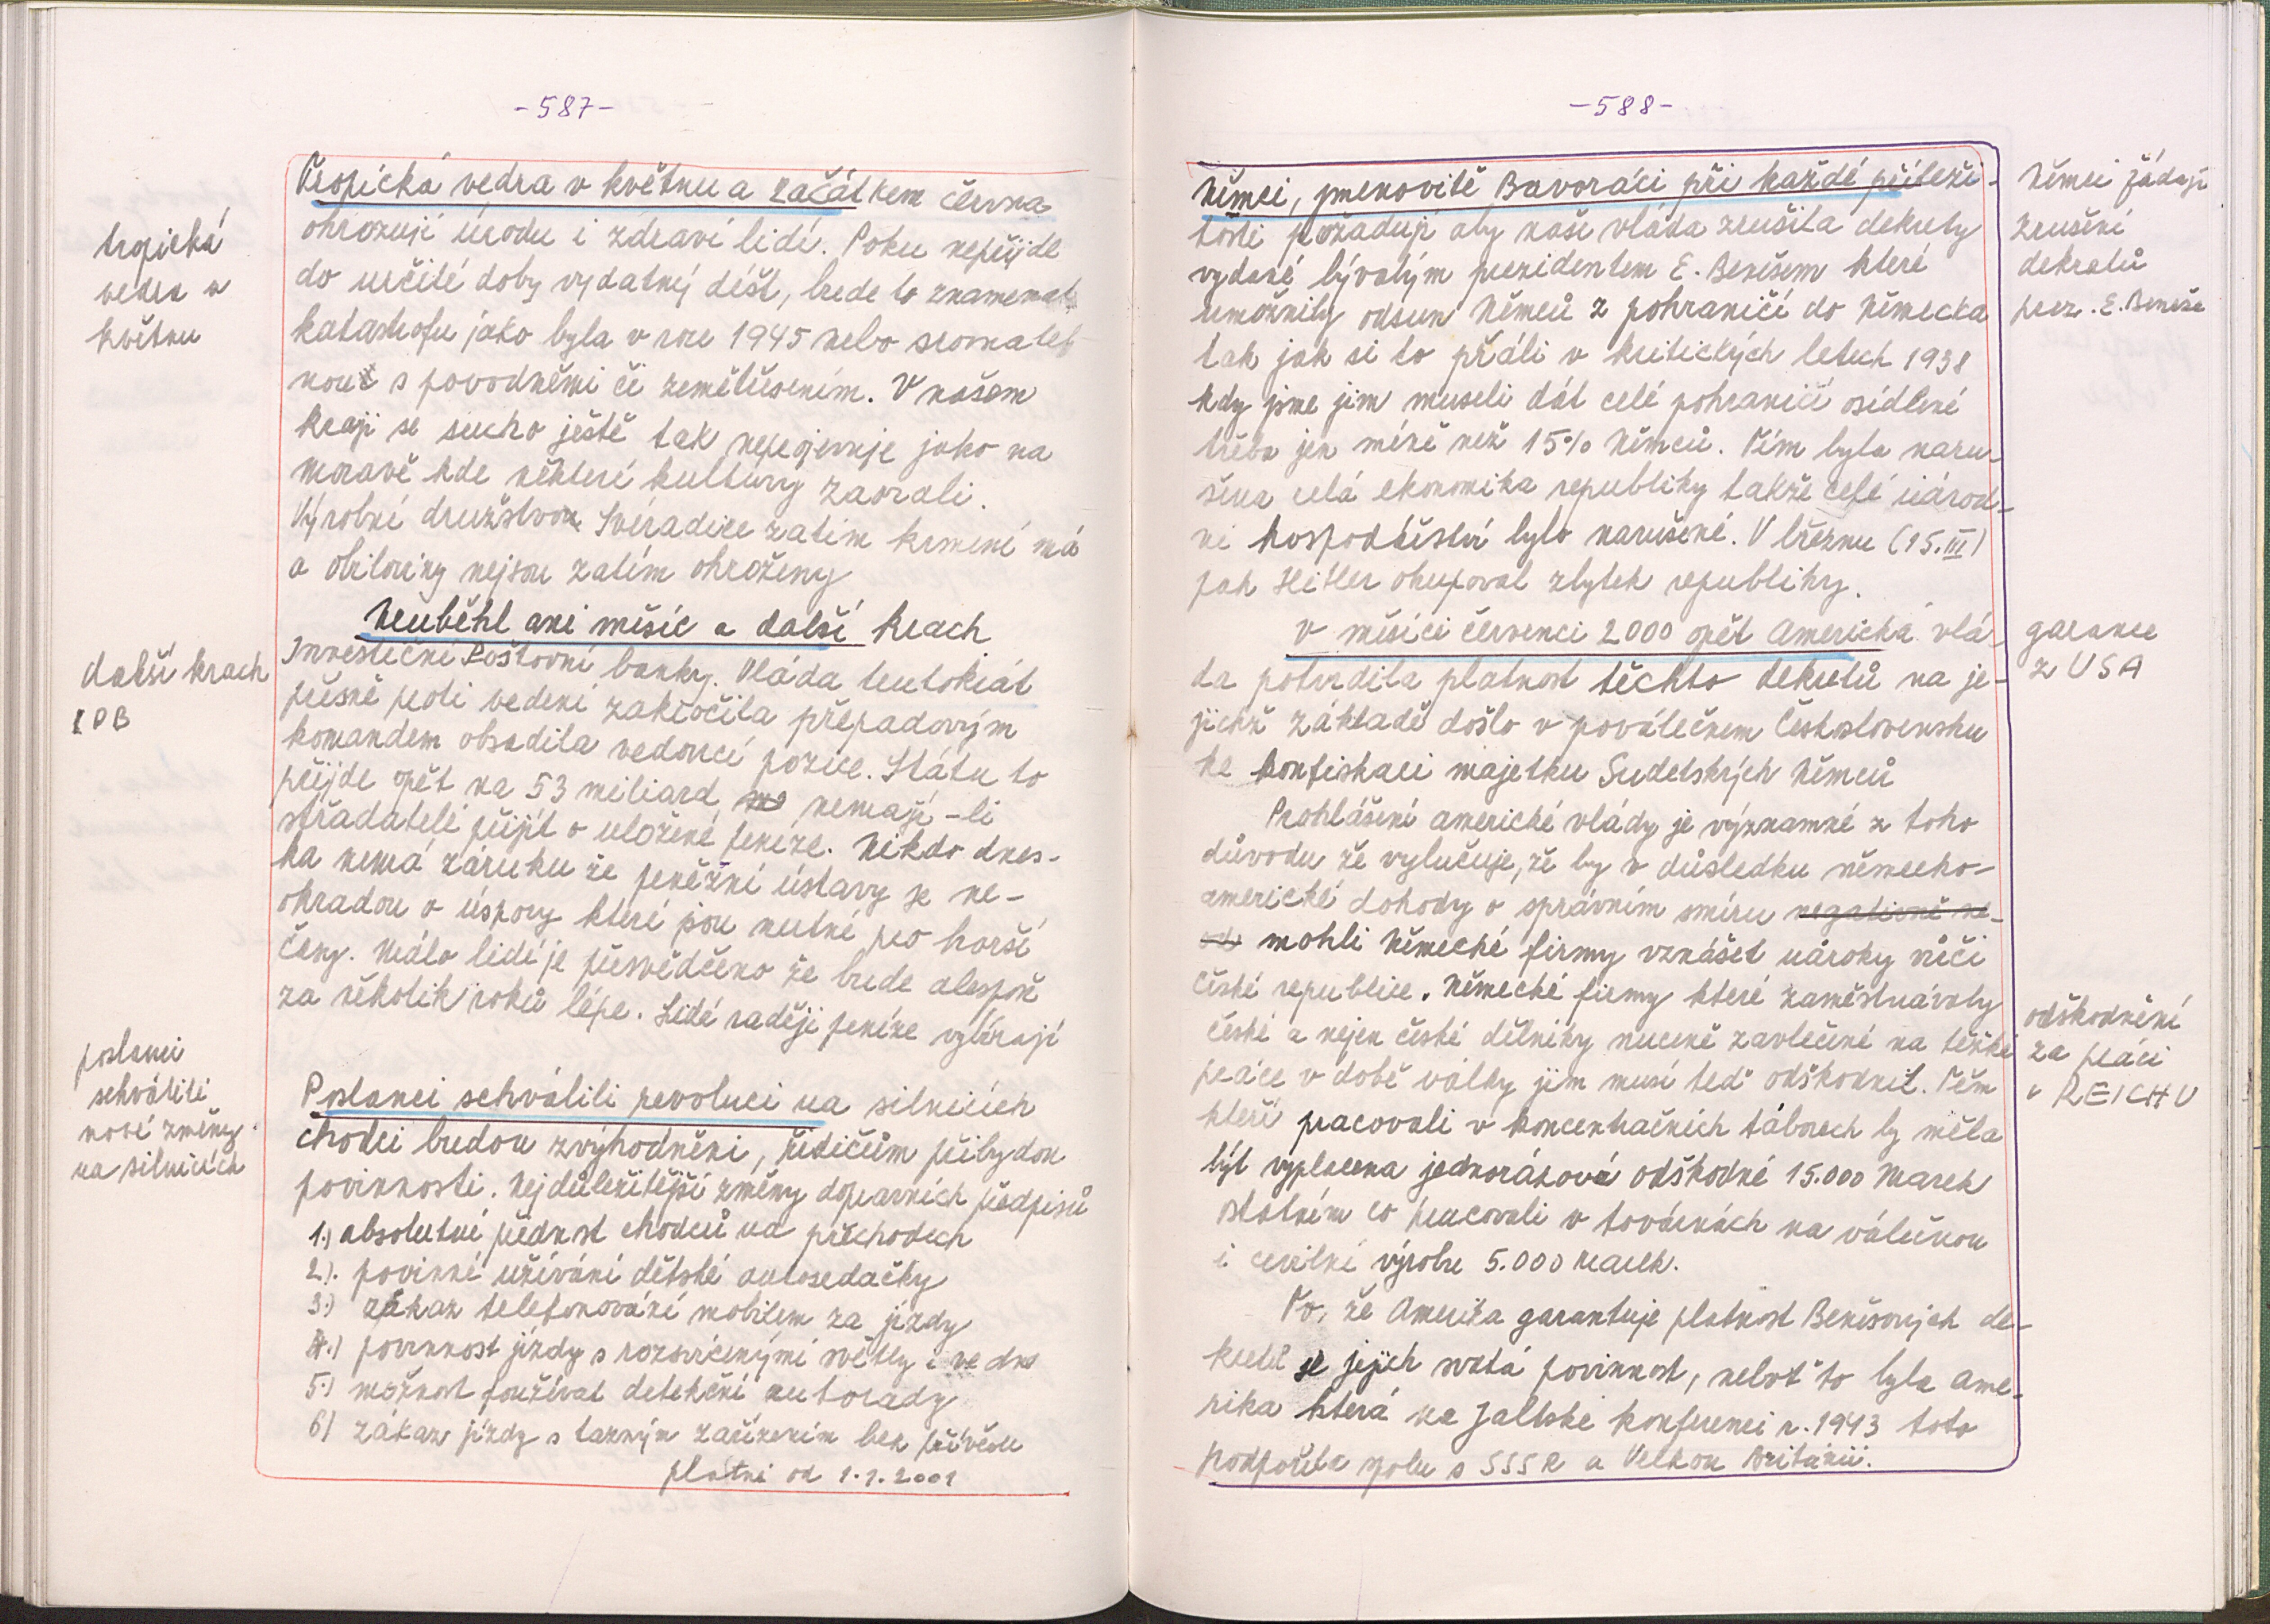 -587-
tropická
vedra v
květnu
Tropická vedra v květnu a začátkem června
ohrožují úrodu i zdraví lidí. Poku nepřijde
do určité doby vydatný déšť, bude to znamenat
katastrofu jako byla v roce 1945 nebo srovnatel-
nou s povodněmi či zemětřesením. V našem
kraji se sucho ještě tak neprojevuje jako na
Moravě kde některé kultury zaorali.
Výrobní družstvo Svéradice zatím krmení má
a obiloviny nejsou zatím ohroženy
další krach
IPB
Neuběhl ani měsíc a další krach
Investiční Poštovní banky. Vláda tentokrát
přísně proti vedení zakročila přepadovým
komandem obsadila vedoucí pozice. Státu to
přijde opět na 53 miliard nemají-li
střadatelé přijít o uložené peníze. Nikdo dnes-
ka nemá záruku že peněžní ústavy je ne-
okradou o úspory které jsou nutné pro horší
časy. Málo lidí je přesvědčeno že bude alespoň
za několik roků lépe. Lidé raději peníze vybírají
poslanci
schválili
nové změny
na silnicích
Poslanci schválili revoluci na silnicích
chodci budou zvýhodněni, řidičům přibydou
povinnosti. Nejdůležitější změny dopravních předpisů
1.) absolutní přednost chodců na přechodech
2.) povinné užívání dětské autosedačky
3.) zákaz telefonování mobilem za jízdy
4.) povinnost jízdy s rozsvícenými světly i ve dne
5.) možnost používat detekční autorady
6) zákaz jízdy s tažným zařízením bez přívěsu
platné od 1.1.2001
-588-
Němci, jmenovitě Bavoráci při každé příleži-
tosti požadují aby naše vláda zrušila dekrety
vydané bývalým prezidentem E. Benešem které
umožnily odsun Němců z pohraničí do Německa
tak jak si to přáli v kritických letech 1938
kdy jsme jim museli dát celé pohraničí osídlené
třeba jen méně než 15% Němců. Tím byla naru-
šena celá ekonomika republiky takže celé národ-
ní hospodářství bylo narušené. V březnu (15.III)
pak Hitler okupoval zbytek republiky.
Němci žádají
zrušení
dekretů
prez. E. Beneše
V měsíci červenci 2000 opět Americká vlá-
da potvrdila platnost těchto dekretů na je-
jichž základě došlo v poválečném Československu
ke konfiskaci majetku Sudetských Němců
garance
z USA
Prohlášení americké vlády je významné z toho
důvodu že vylučuje, že by v důsledku německo-
americké dohody o správním smíru negativně ne-
mohli Německé firmy vznášet nároky vůči
České republice. Německé firmy které zaměstnávaly
české a nejen české dělníky nuceně zavlečené na těžké
práce v době války jim musí teď odškodnit. Těm
kteří pracovali v koncentračních táborech by měla
být vyplacena jednorázová odškodné 15.000 Marek
ostatním co pracovali v továrnách na válečnou
i civilní výrobu 5.000 Marek.
odškodnění
za práci
v REICHU
To, že Amerika garantuje platnost Benešových de-
kretů je jejich svatá povinnost, neboť to byla Ame-
rika která na Jaltské konferenci r. 1943 toto
podpořila spolu s SSSR a Velkou Britanií.